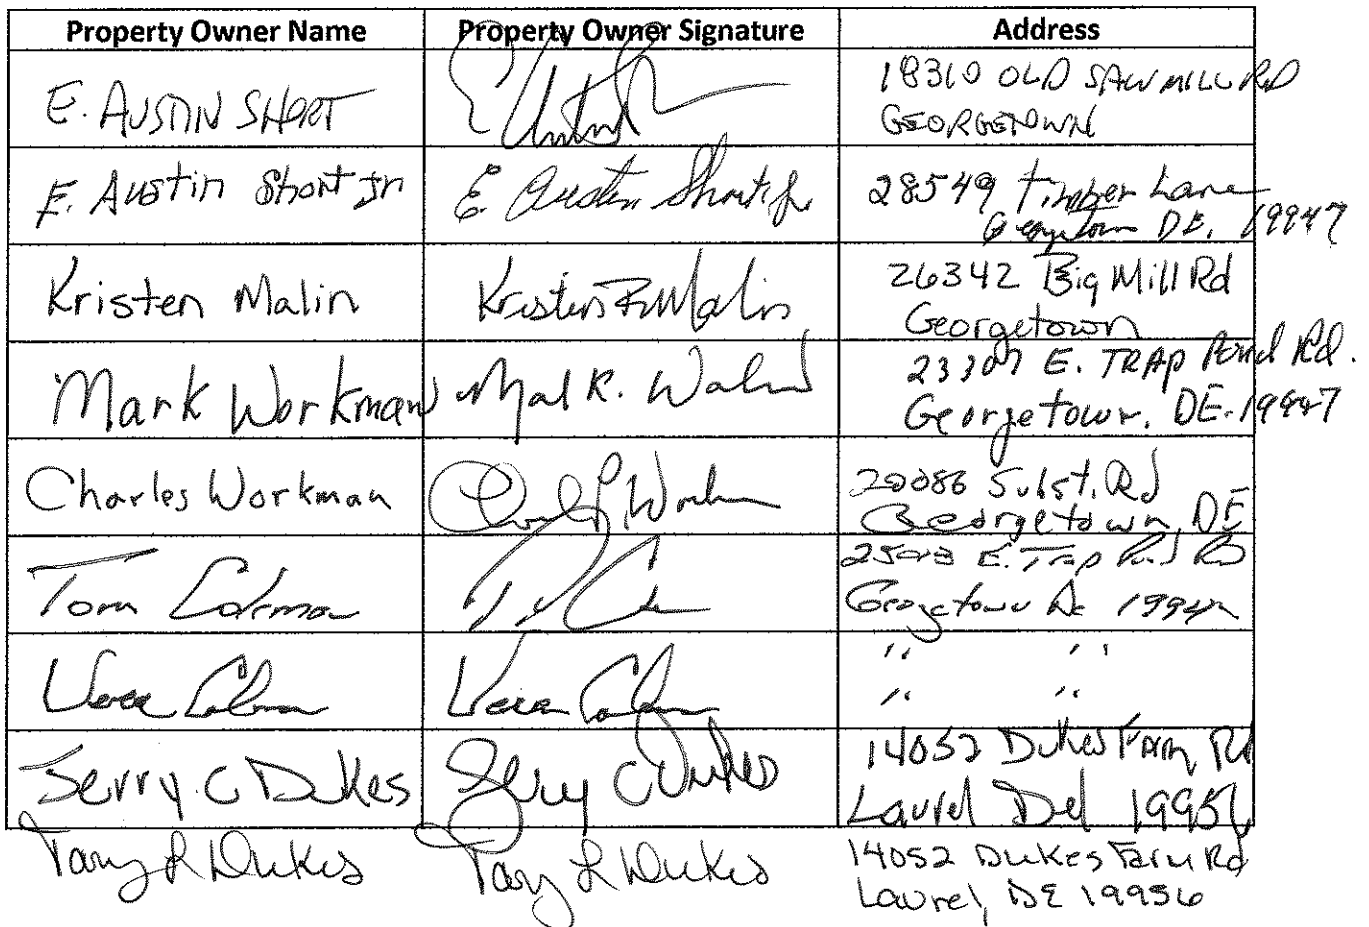 Property Owner Name Property Owner Signature Address
E. AUSTIN SHORT 18310 OLD SAWMILL RD
GEORGETOWN
E. Austin Short Jr E. Austin Short Jr 28549 Timber Lane
Georgetown DE. 19947
Kristen Malin Kristen R Malin 26342 Big Mill Rd
Georgetown
Mark Workman Mark R. 23307 E. TRAP Pond Rd.
Georgetown, DE. 19947
Charles Workman Workman 20086 Subst. Rd
Georgetown, DE
Tom Coleman E. Trap Pond Rd
Georgetown De 19947
Vera Coleman Vera Coleman " "
" "
Jerry C Dukes Jerry C Dukes 14052 Dukes Farm Rd
Laurel Del 19956
L Dukes L Dukes 14052 Dukes Farm Rd
Laurel, DE 19956